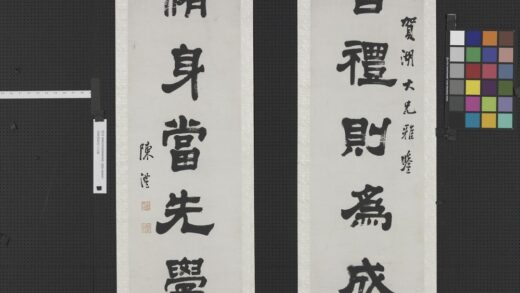 賀湖大兄雅鑒
禮則爲成
身當先學
陳澧